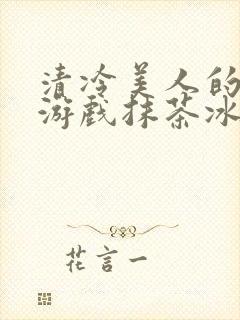 清冷美人的
游戏抹茶冰
花言一